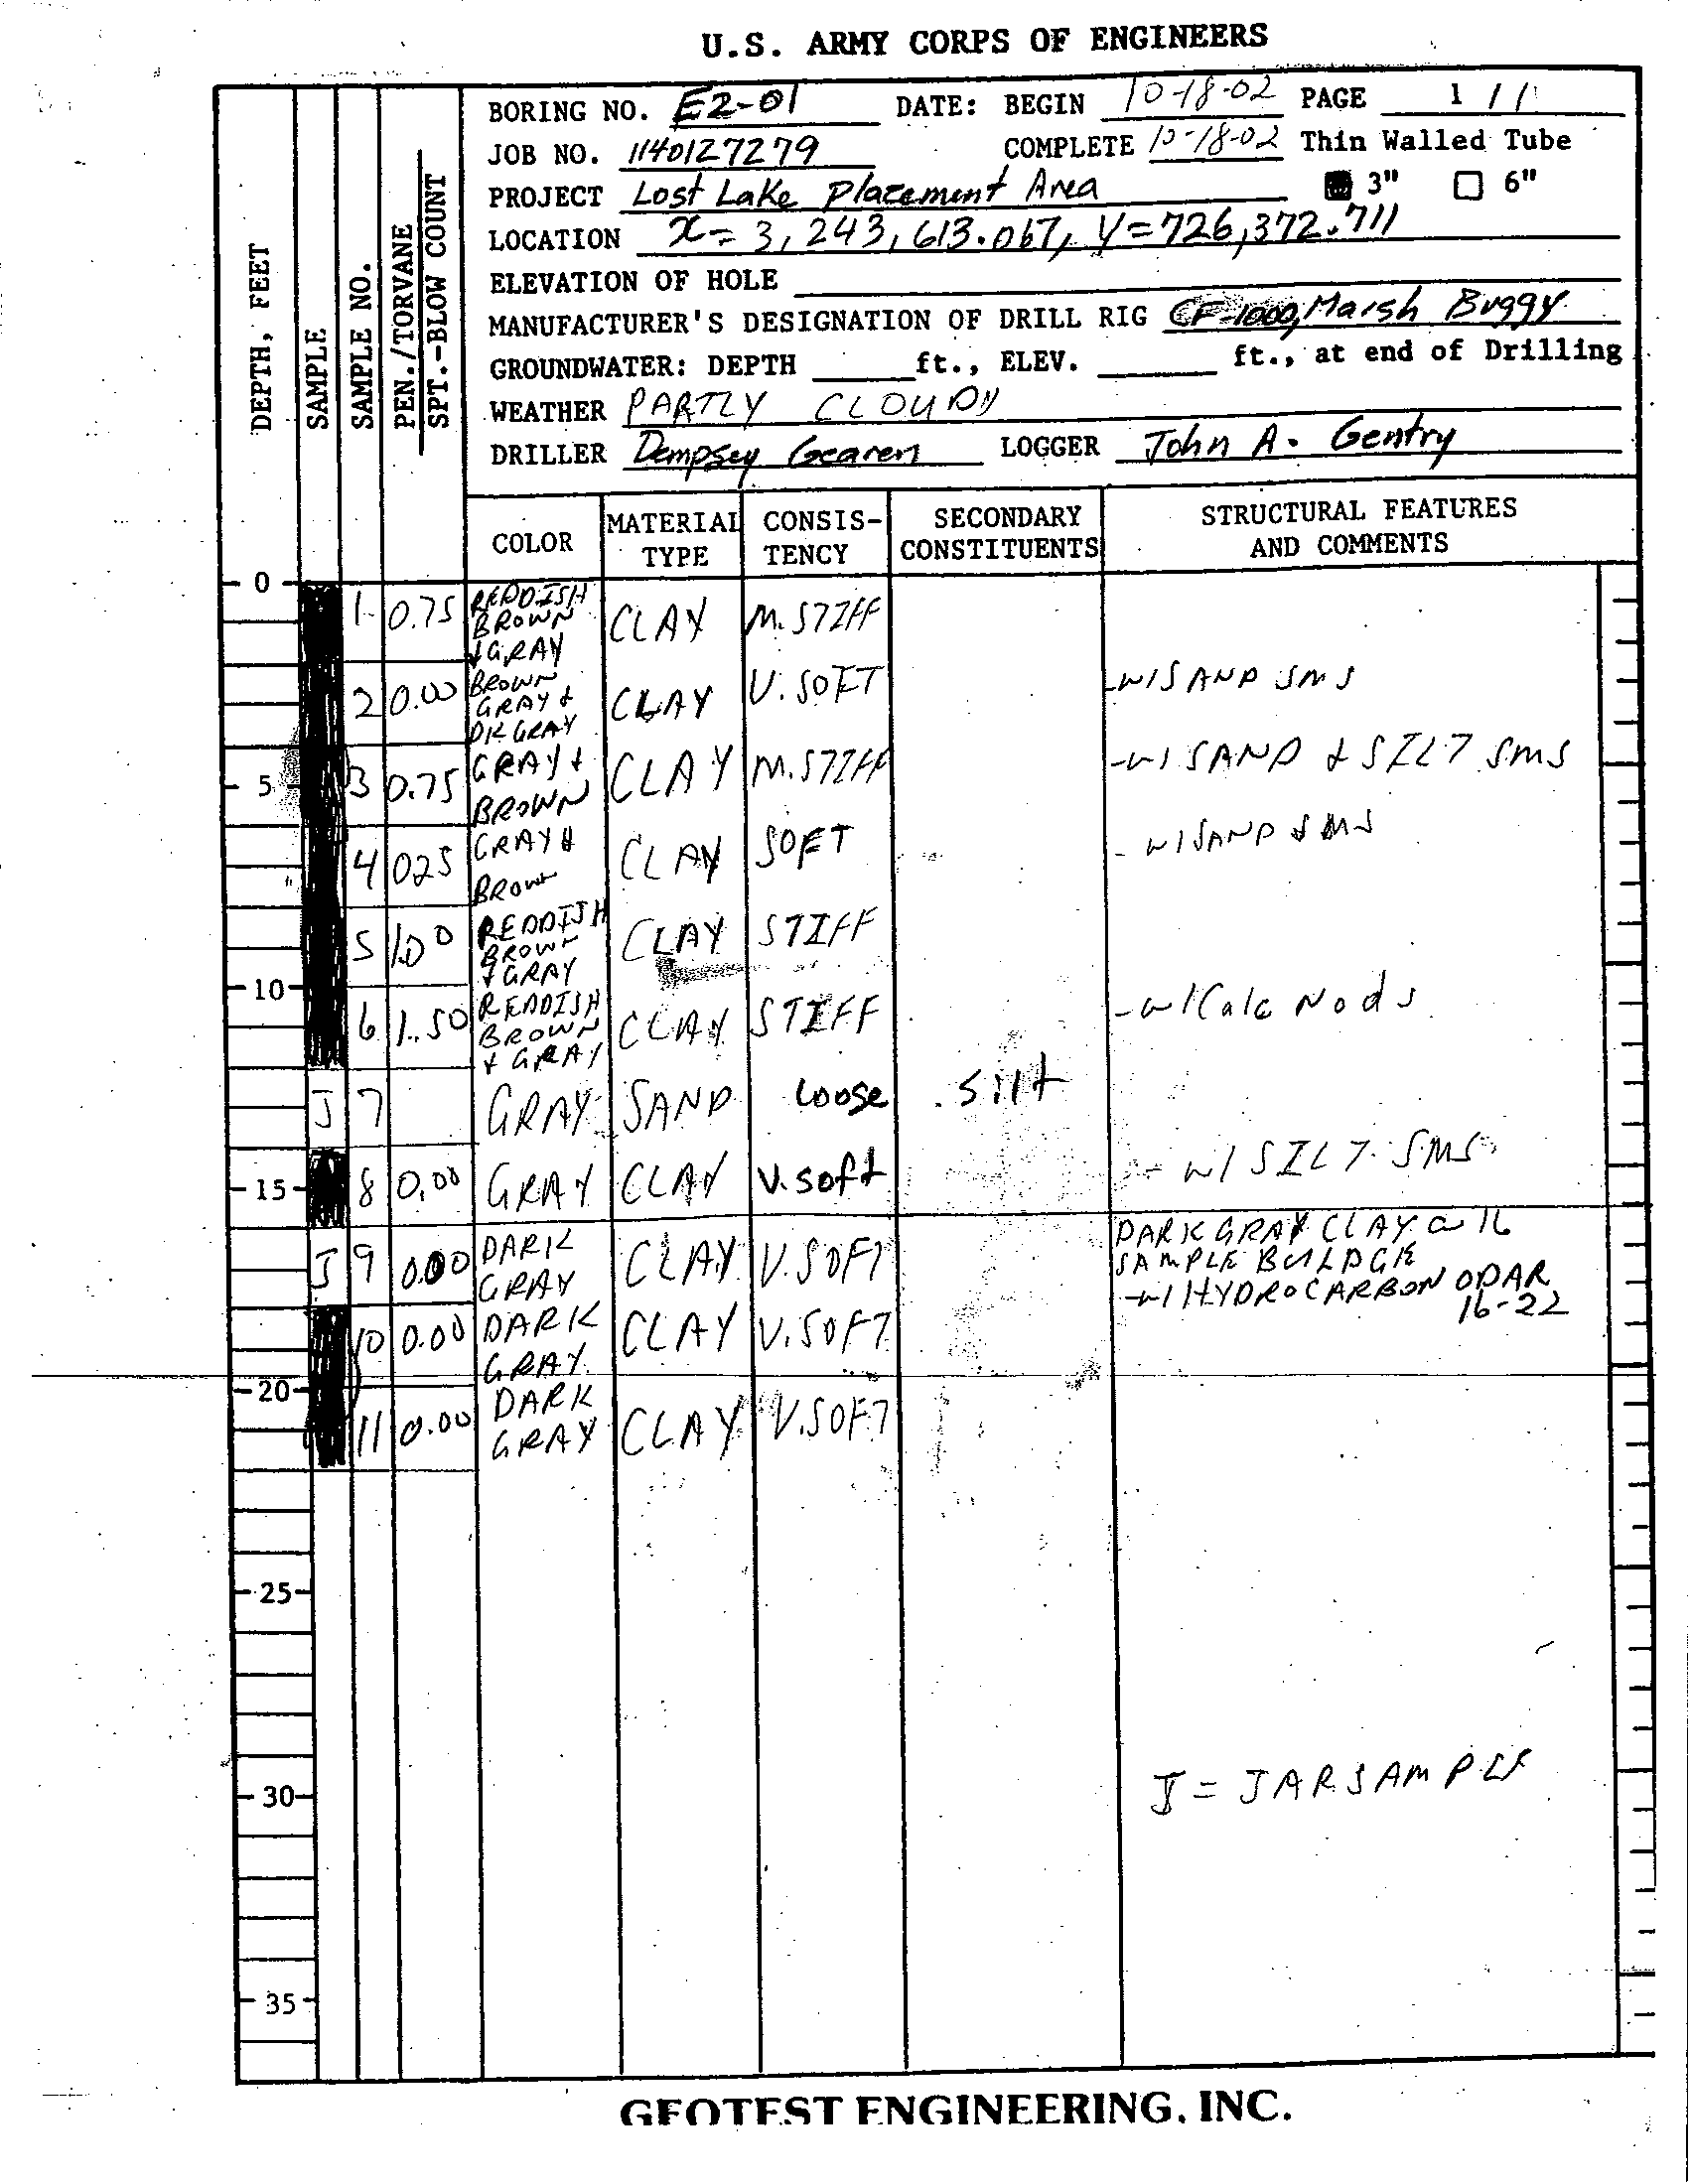 U.S. ARMY CORPS OF ENGINEERS
BORING NO. E2-01 DATE: BEGIN 10-18-02 PAGE 1 / 1
JOB NO. 1140127279 COMPLETE 10-18-02 Thin Walled Tube
PROJECT Lost Lake Placement Area 3" 6"
LOCATION X= 3,243,613.067, Y=726,372.711
ELEVATION OF HOLE
MANUFACTURER'S DESIGNATION OF DRILL RIG CF-1000, Marsh Buggy
GROUNDWATER: DEPTH ft., ELEV. ft., at end of Drilling
WEATHER PARTLY CLOUDY
DRILLER Dempsey Gearen LOGGER John A. Gentry
DEPTH, FEET
SAMPLE
SAMPLE NO.
PEN./TORVANE
SPT.-BLOW COUNT
COLOR MATERIAL TYPE CONSIS-TENCY SECONDARY CONSTITUENTS STRUCTURAL FEATURES AND COMMENTS
0
1 0.75 REDDISH BROWN + GRAY CLAY M. STIFF
2 0.00 BROWN GRAY + DK GRAY CLAY V. SOFT -W/SAND SMS
5 3 0.75 GRAY + BROWN CLAY M. STIFF -W/ SAND + SILT SMS
4 025 GRAY + BROWN CLAY SOFT - W/SAND SMS
5 1.00 REDDISH BROWN + GRAY CLAY STIFF
10
6 1.50 REDDISH BROWN + GRAY CLAY STIFF -w/Calc Nods
J 7 GRAY SAND Loose silt
15 8 0.00 GRAY CLAY V. soft - W/ SILT SMS
J 9 0.00 DARK GRAY CLAY V. SOFT DARK GRAY CLAY @ 16
SAMPLE BUILDGE
-W/ HYDROCARBON ODAR
16-22
10 0.00 DARK GRAY CLAY V. SOFT
20
11 0.00 DARK GRAY CLAY V. SOFT
25
30 J = JAR SAMPLE
35
GEOTEST ENGINEERING, INC.